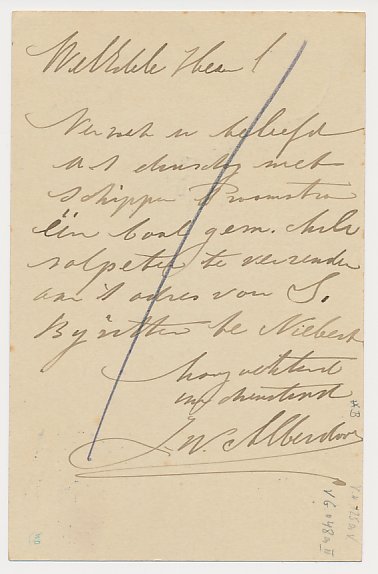 WelEdele Heer!
Verzoek u beleefd
a/s dinsdag met
schipper Proomstra
één baal gem. chili
salpeter te verzenden
aan 't adres van S.
By te Niebert
Hoogachtend
uw dienstend
J W. Alberda
HB
VG 048a II